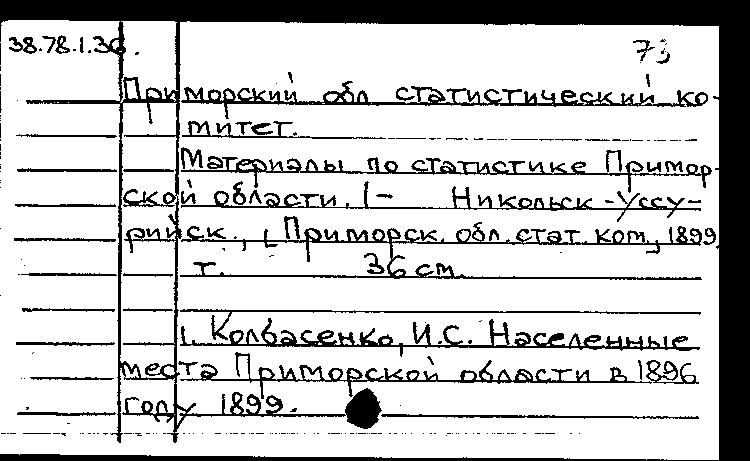 38.78.1.36. 73
Приморский обл. статистический ко-
митет.
Материалы по статистике Примор-
ской области. 1- Никольск-Уссу-
рийск., [Приморск. обл. стат. ком.], 1899.
т. 36 cm.
1. Колбасенко, И.С. Населенные
места Приморской области в 1896
году 1899.